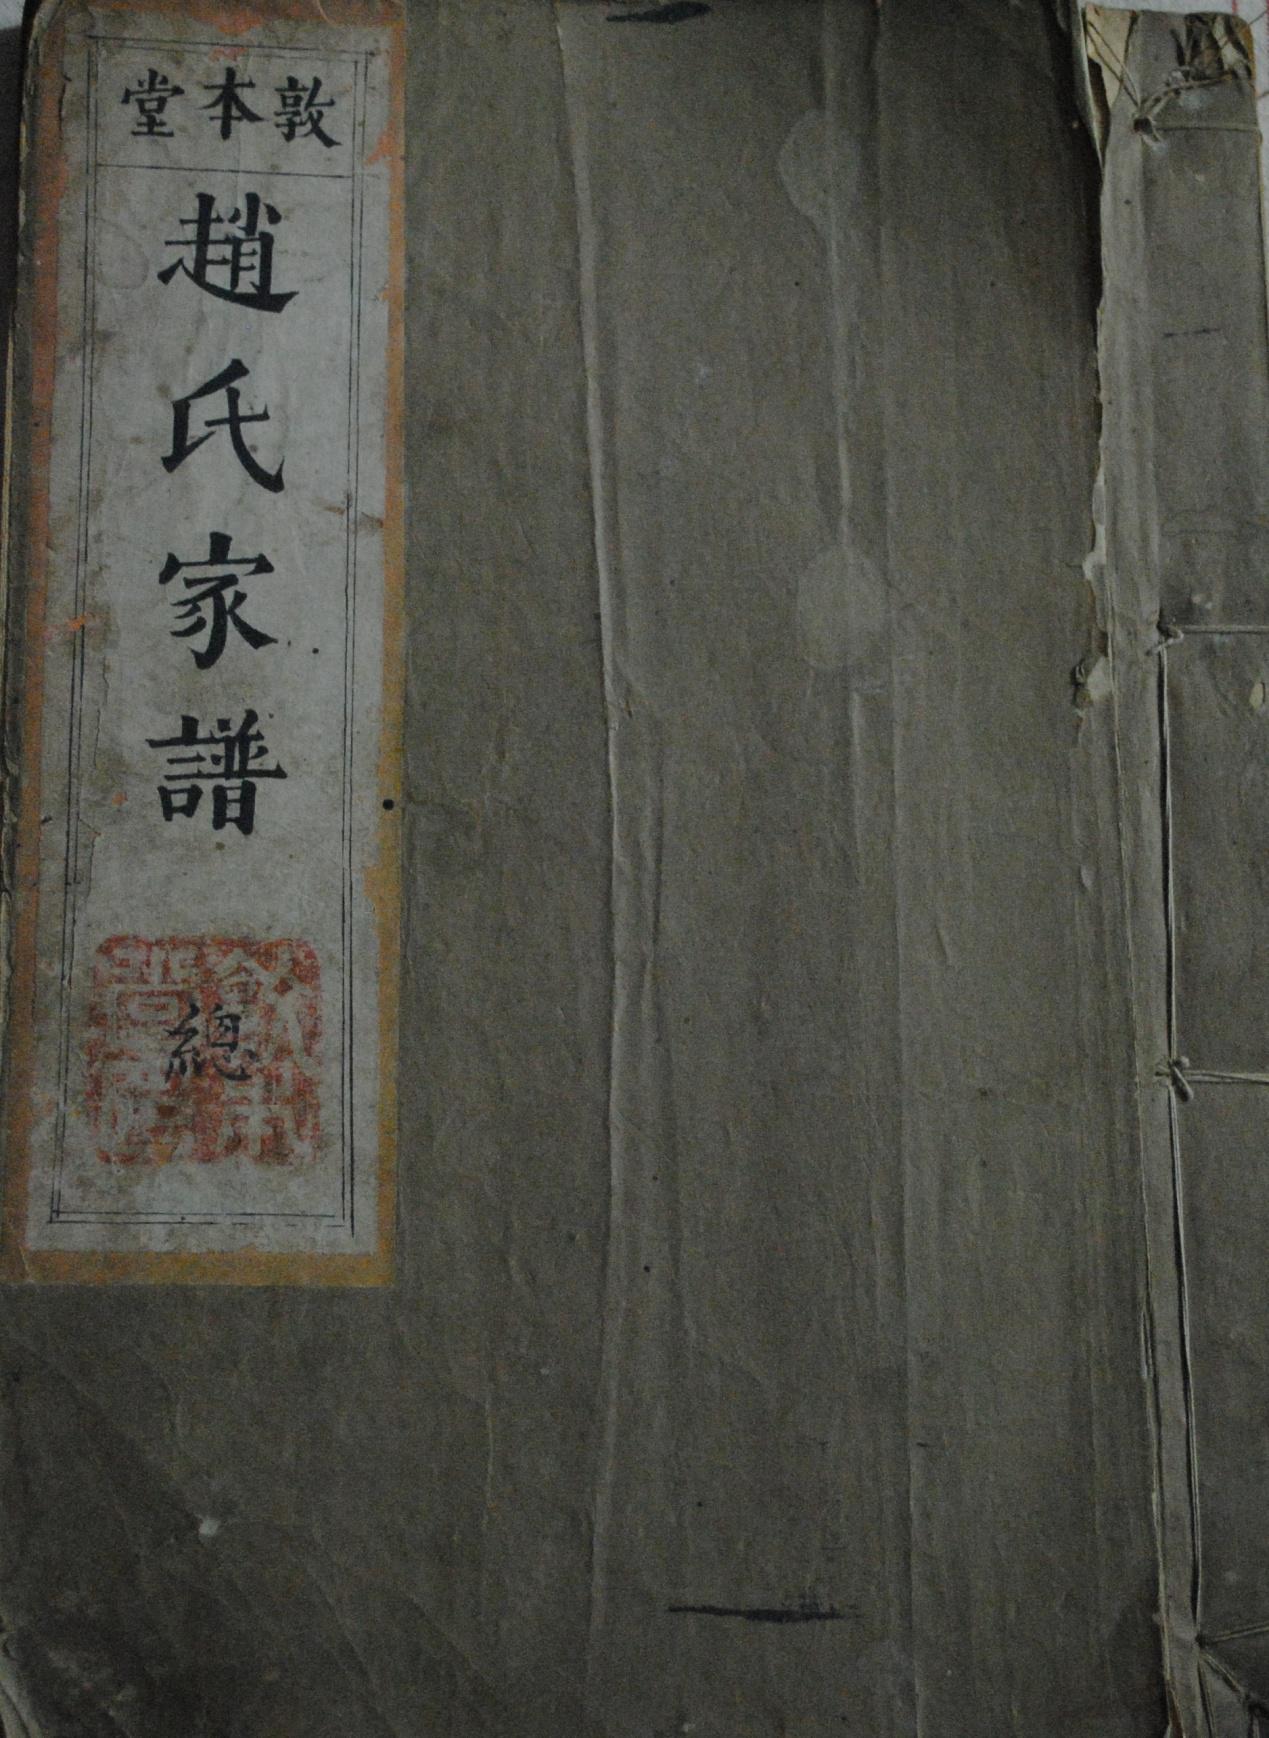 敦本堂
趙氏家譜
總